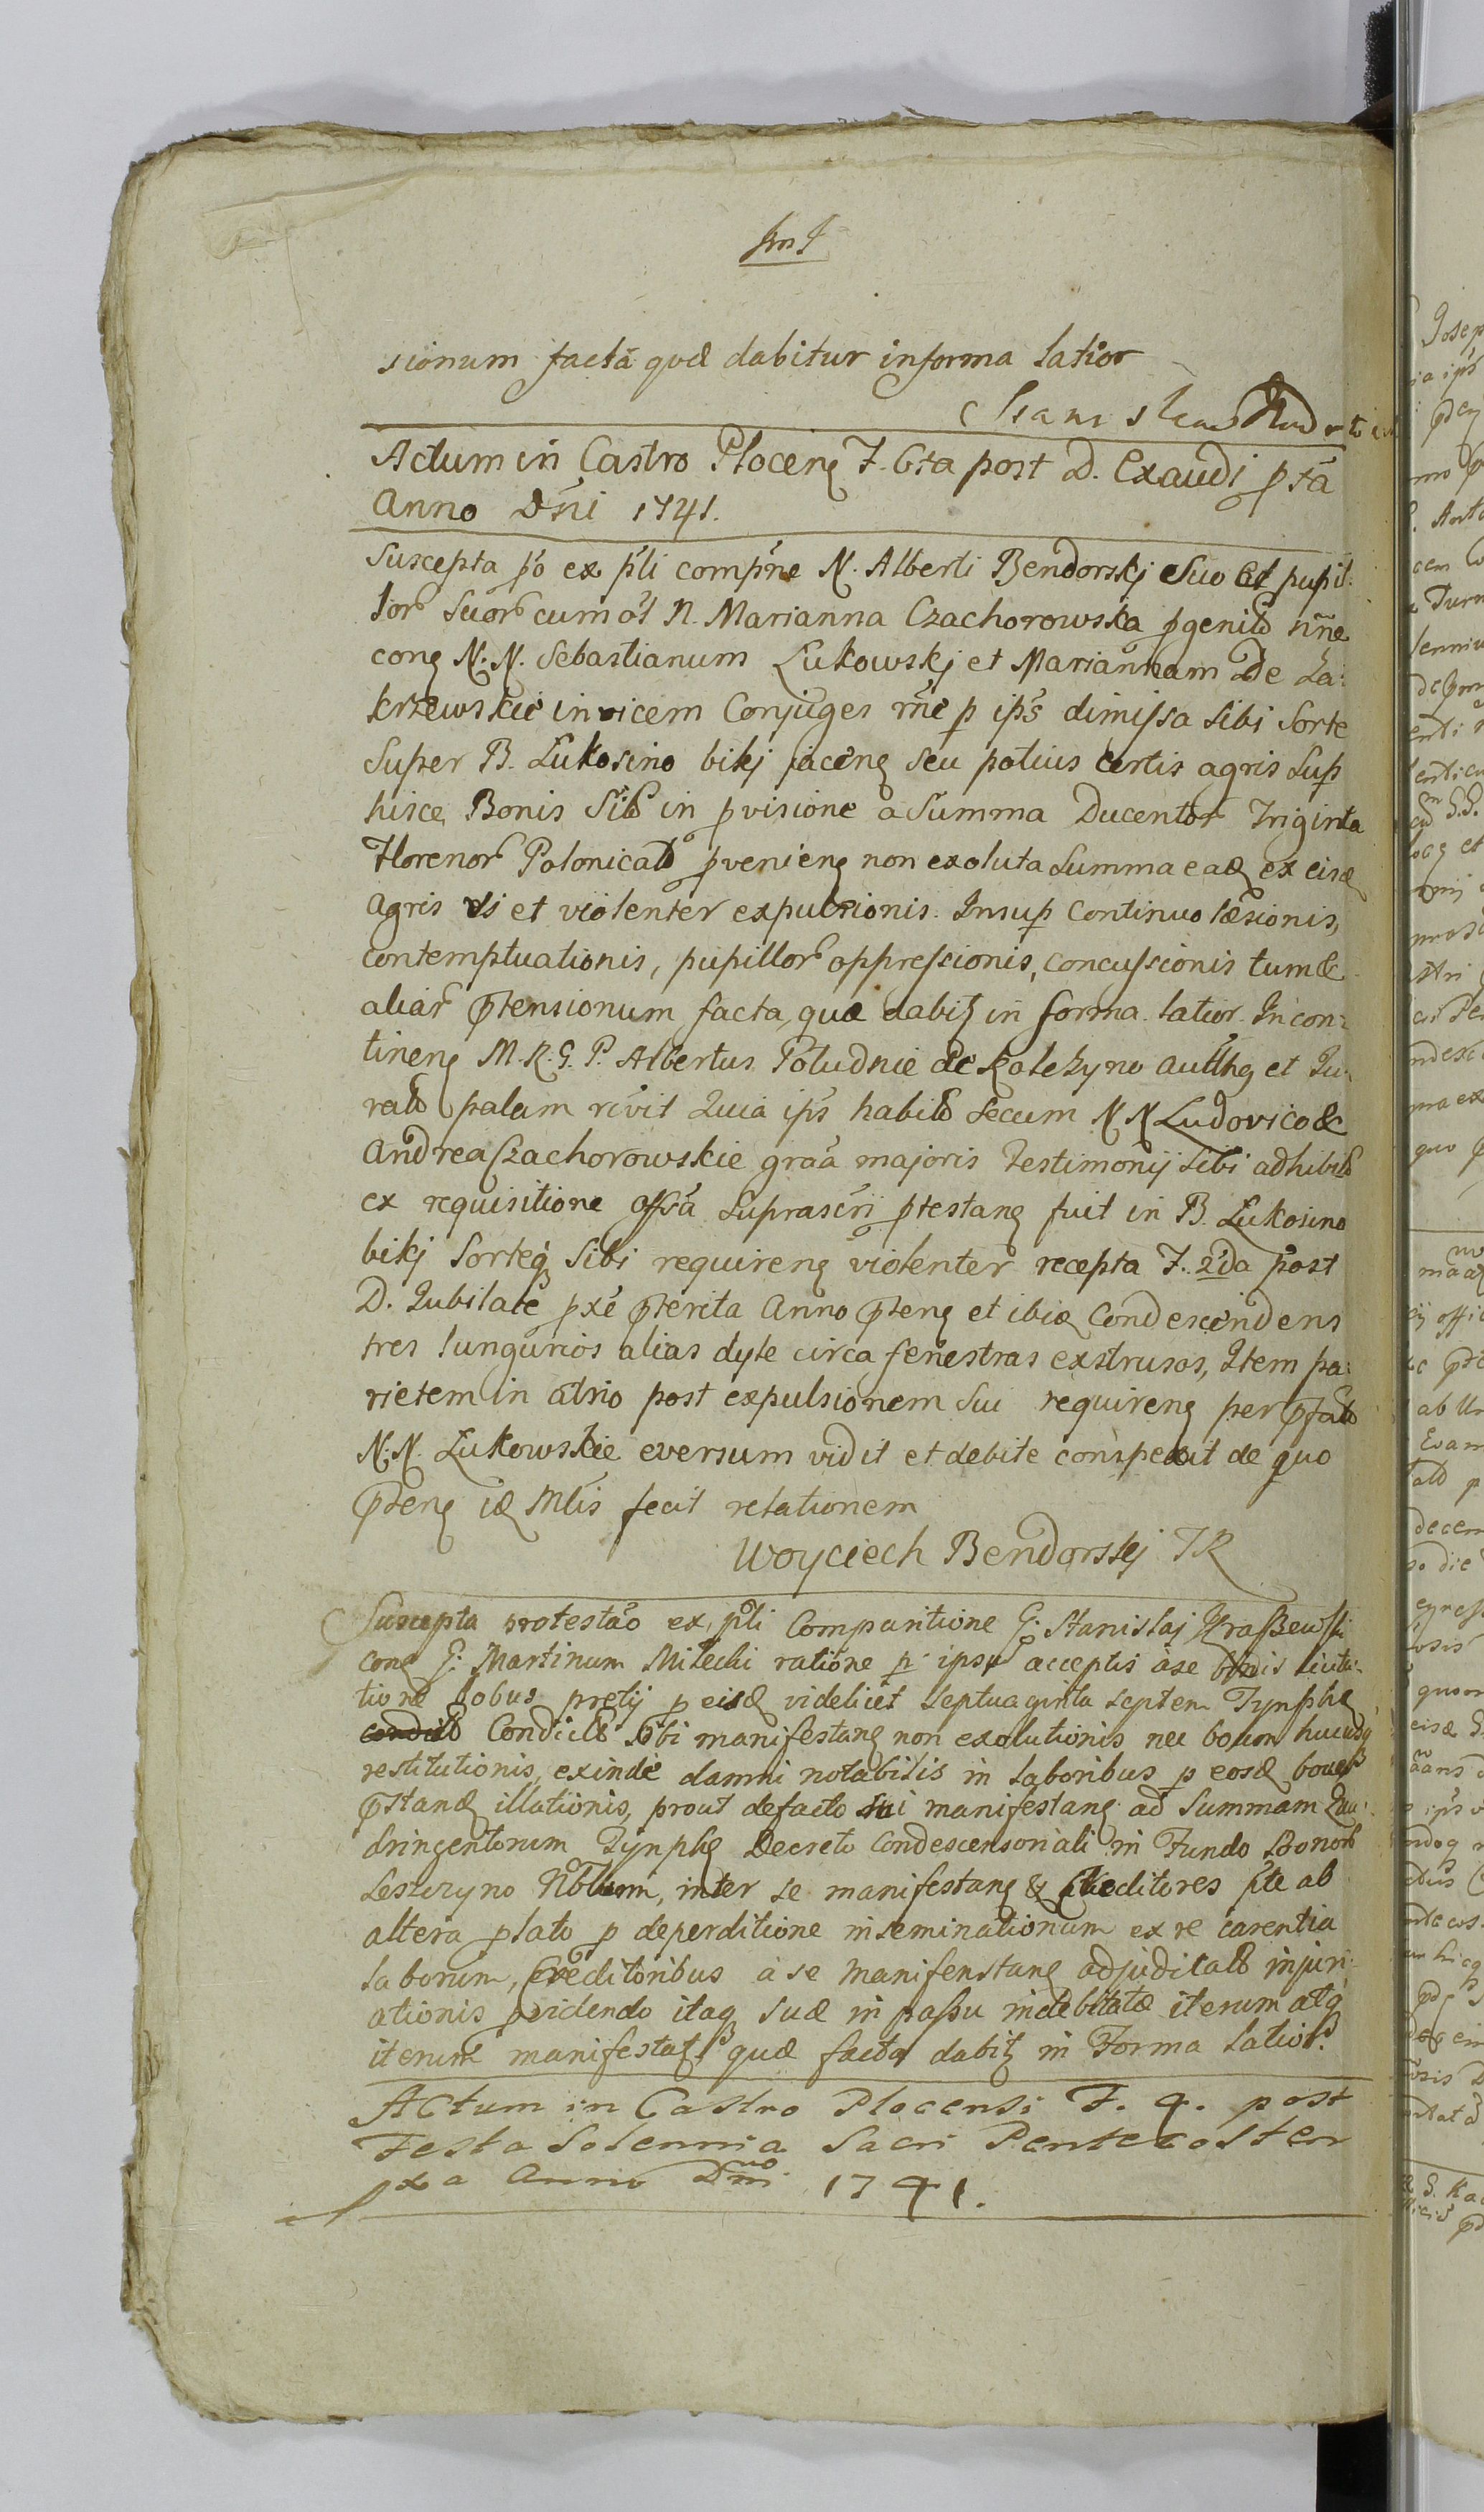 sionum factã quæ dabitur in forma latior
Actum in Castro Plocenȝ F. 6ta post D. Exaudi pxã
Anno Dñi 1741.
Suscepta pō ex pñli compñe N. Alberti Bendorskj Suo et pupil:
lor Suor cum ol N. Marianna Czachorowska pgenitō nñe
cong N.N. Sebastianum Łukowskj et Mariannam De Za:
krzewskie invicem Conjuges rñe p ips dimissa sibi Sorte
Super B. Łukosino bikj jacenȝ seu potius certis agris Sup
hisce Bonis Sibi in pvisione a Summa Ducentor Triginta
Florenor Polonicalō pvenienȝ non exoluta Summa eadȝ ex eisdȝ
Agris vi et violenter expulsionis. Insup continuo læsionis,
contemptuationis, pupillor oppressionis, concussionis tum &
aliar ptensionum facta, quæ dabitȝ in forma latior. Incon:
tinenȝ M. R. G. P. Albertus Południe de Koleżyno authȝ et Ju:
ratō palam rñvit Quia ips habitō secum N N Ludovico &
Andrea Czachorowskie graã majoris Testimonij Sibi adhibitō
ex requisitione offsã suprascrii ptestanȝ fuit in B. Łukosino
bikj Sorteq sibi requirenȝ violenter recepta F. 2da post
D. Jubilate pxe pterita Anno ptenȝ et ibiȝ condescendens
tres lungurios alias dyle circa fenestras exstrusos, Item pa:
rietem in atrio post expulsionem sui requirenȝ per pfatō
N.N. Łukowskie eversum vidit et debite conspexit de quo
ptenȝ idȝ Mlis fecit relationem
Woyciech Bendorskj TR
Suscepta protestão ex pñli Comparitione G. Stanislaj
cong G: Martinum Milecki ratione p ipsu acceptis a se licita:
tione bobus pretij p eisdȝ videlicet Septuaginta septem Tynphȝ
Condictō Sibi manifestanȝ non exolutionis nec boum hucusq
restitutionis, exinde damni notabilis in laboribus p eosdȝ boves
pstandȝ illationis, prout defacto sui manifestanȝ ad Summam Qua:
dringentorum Tynphȝ Decreto Condescensoriali in Fundo Bonor
inter se manifestanȝ & Creditores pte ab
altera plato p deperditione inseminationum ex re carentia
laborum, Creditoribus a se Manifenstanȝ adjudicatō injuri:
ationis pvidendo itaq suæ in passu indebitatæ iterum atq
iterum manifestatȝ quæ facta dabitȝ in Forma latior.
Actum in Castro Plocensi F. 4. post
Festa Solennia Sacri Pentecosten
pxa Anno Dñi 1741.